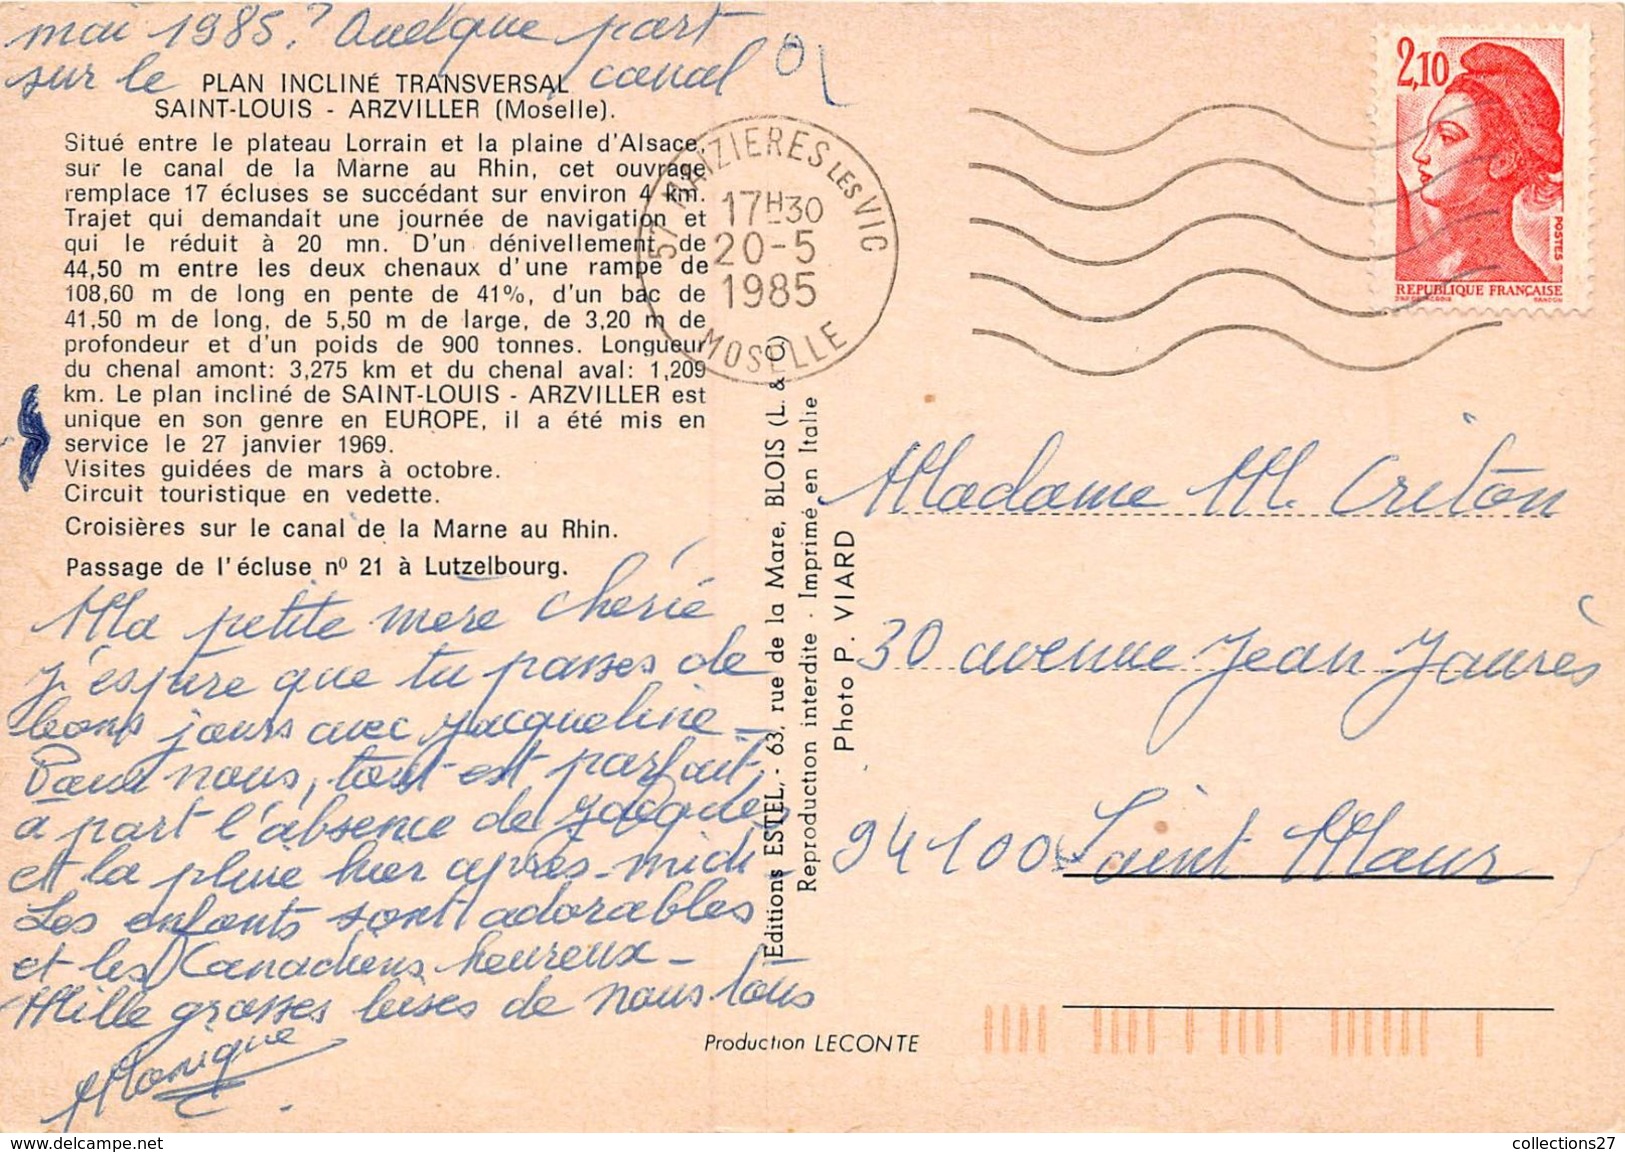 mai 1985? Quelque part
sur le canal
PLAN INCLINÉ TRANSVERSAL
SAINT-LOUIS - ARZVILLER (Moselle).
Situé entre le plateau Lorrain et la plaine d'Alsace,
sur le canal de la Marne au Rhin, cet ouvrage
remplace 17 écluses se succédant sur environ 4 km.
Trajet qui demandait une journée de navigation et
qui le réduit à 20 mn. D'un dénivellement de
44,50 m entre les deux chenaux d'une rampe de
108,60 m de long en pente de 41%, d'un bac de
41,50 m de long, de 5,50 m de large, de 3,20 m de
profondeur et d'un poids de 900 tonnes. Longueur
du chenal amont: 3,275 km et du chenal aval: 1,209
km. Le plan incliné de SAINT-LOUIS - ARZVILLER est
unique en son genre en EUROPE, il a été mis en
service le 27 janvier 1969.
Visites guidées de mars à octobre.
Circuit touristique en vedette.
Croisières sur le canal de la Marne au Rhin.
Passage de l'écluse nº 21 à Lutzelbourg.
Ma petite mère chérie
j'espère que tu passes de
bons jours avec Jacqueline -
Pour nous, tout est parfait,
à part l'absence de Jacques
et la pluie hier après-midi -
Les enfants sont adorables
et les Canadiens heureux -
Mille grosses bises de nous tous
Monique
Editions ESTEL, - 63, rue de la Mare, BLOIS (L. & C)
Reproduction interdite - Imprimé en Italie
Photo P. VIARD
Production LECONTE
57 MAIZIERES LES VIC
17H30
20-5
1985
MOSELLE
2,10
POSTES
REPUBLIQUE FRANÇAISE
D'AP. DELACROIX GANDON
Madame M. Criton
30 avenue Jean Jaurès
94100 Saint Maur
collections27